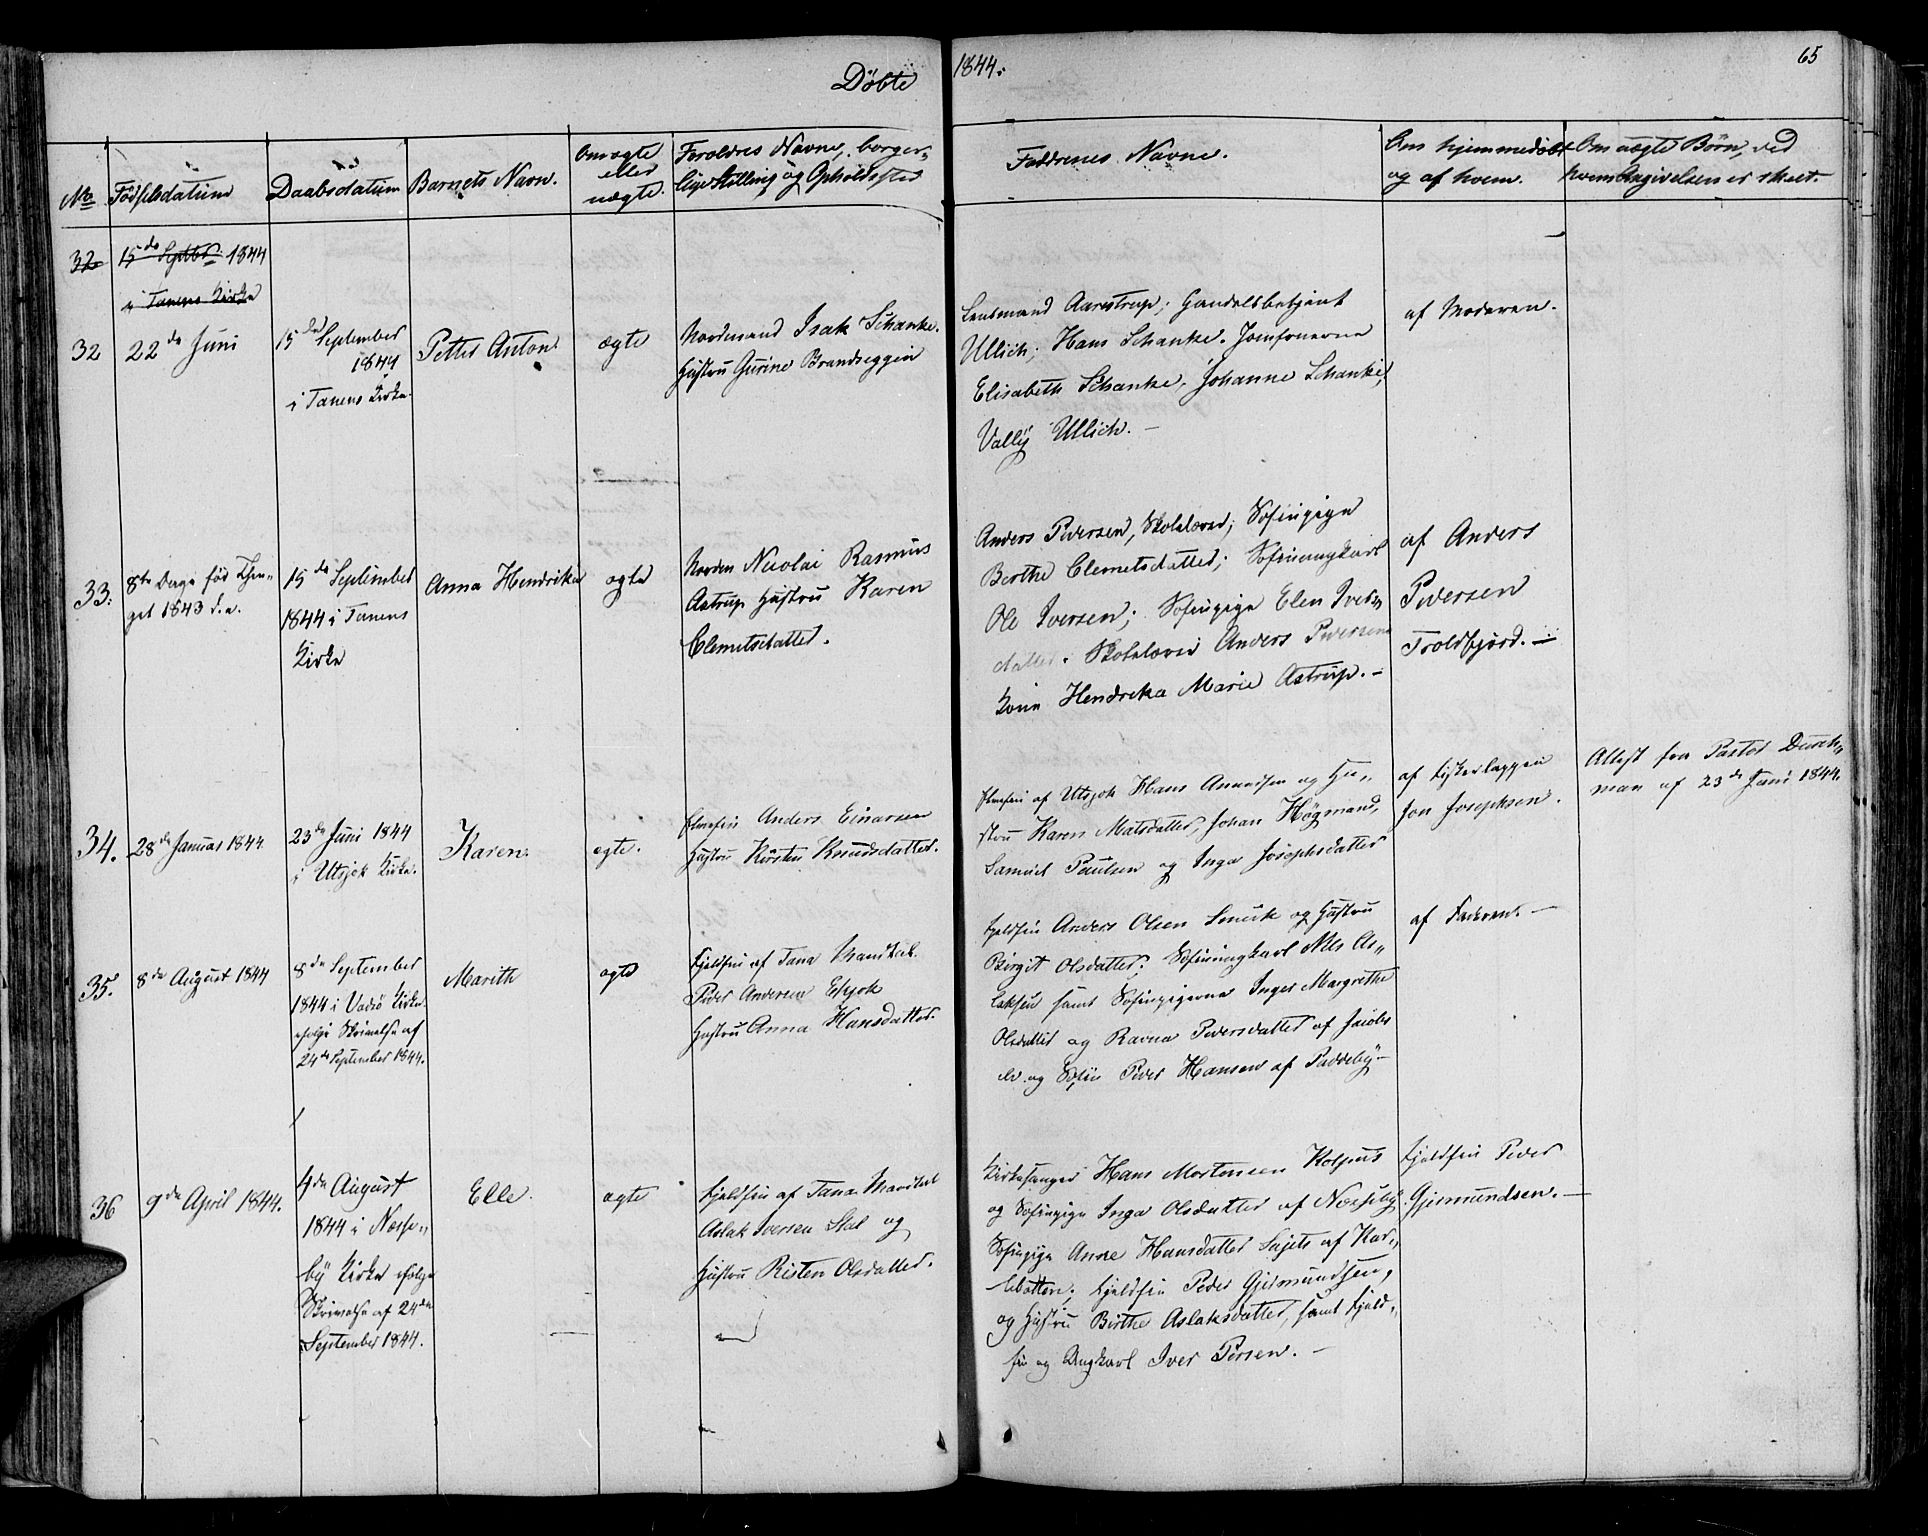 Döbte 1844.
65
No
Födselsdatum
Daabsdatum
Barnets Navn.
Om ægte
eller
uægte.
Foreldres Navne, borger-
lige Stilling og Opholdssted
Faddernes Navne.
Om hjemmedöbt
og af hvem.
Om uægte Börn, ved
hvem Angivelsen er skeet.
32
15de Septbr 1844
i Tanens Kirke
32
22de Juni
15de September
1844
i Tanens Kirke.
Petter Anton
ægte
Nordmand Isak Schanke.
Hustru Gurine Brandseggen
Lensmand Aarestrup; Handelsbetjent
Ullich; Hans Schanke. Jomfruerne
Elisabeth Schanke, Johanne Schanke,
Vallÿ Ullich. —
af Moderen.
33.
8te Dage för Thin-
get 1843 d. a.
15de September
1844 i Tanens
Kirke
Anna Hendrika
ægte
Norden Nicolai Rasmus
Astrup Hustru Karen
Clemetsdatter.
Anders Pedersen, Skolelærer; Söfinpige
Berthe Clemetsdatter; Söfinungkarl
Ole Iversen; Söfinpige Elen Ivers-
datter. Skolelærer Anders Pedersens
Kone Hendrika Marie Astrup. —
af Anders
Pedersen
Troldfjord. —
34.
28de Januar 1844
23de Juni 1844
i Utsjok Kirke.
Karen.
ægte.
Elvefin Anders Einarsen
Hustru Kirsten Knudsdatter.
Elvefin af Utsjok Hans Amundsen og Hu-
stru Karen Matsdatter, Johan Högmand,
Samuel Paulsen og Inga Josephsdatter
af Fiskerlappen
Jon Josephsen.
Attest fra Pastor Durch-
man af 23de Juni 1844.
35.
8de August 1844
8de September
1844 i Vadsö Kirke
ifölge Skrivelse af
24de September 1844.
Marith
ægte
Fjeldfin af Tana Mandtal.
Peder Andersen Eskjok
Hustru Anna Hansdatter.
Fjeldfin Anders Olsen Smuk og Hustru
Birgit Olsdatter; Söfinungkarl Nils As-
laksen samt Söfinpigerne Inger Margrethe
Olsdatter og Ravna Pedersdatter af Jacobs
elv. og Söfin Peder Hansen af Paddebÿ —
af Faderen. —
36
9de April 1844.
4de August
1844 i Nesse-
bÿ Kirke ifölge
Skrivelse af 24de
September 1844.
Elle
ægte
Fjeldfin af Tana Mandtal
Aslak Iversen Stal og
Hustru Risten Olsdatter.
Kirkesanger Hans Mortensen Kolpus
og Söfinpige Inga Olsdatter af Nessebÿ.
Söfinpige Anne Hansdatter Sajets af Kar-
lebotten; Fjeldfin Peder Gjermundsen,
og Hustru Birthe Aslaksdatter, samt Fjeld-
fin og Ungkarl Iver Persen. —
Fjeldfin Peder
Gjermundsen. —